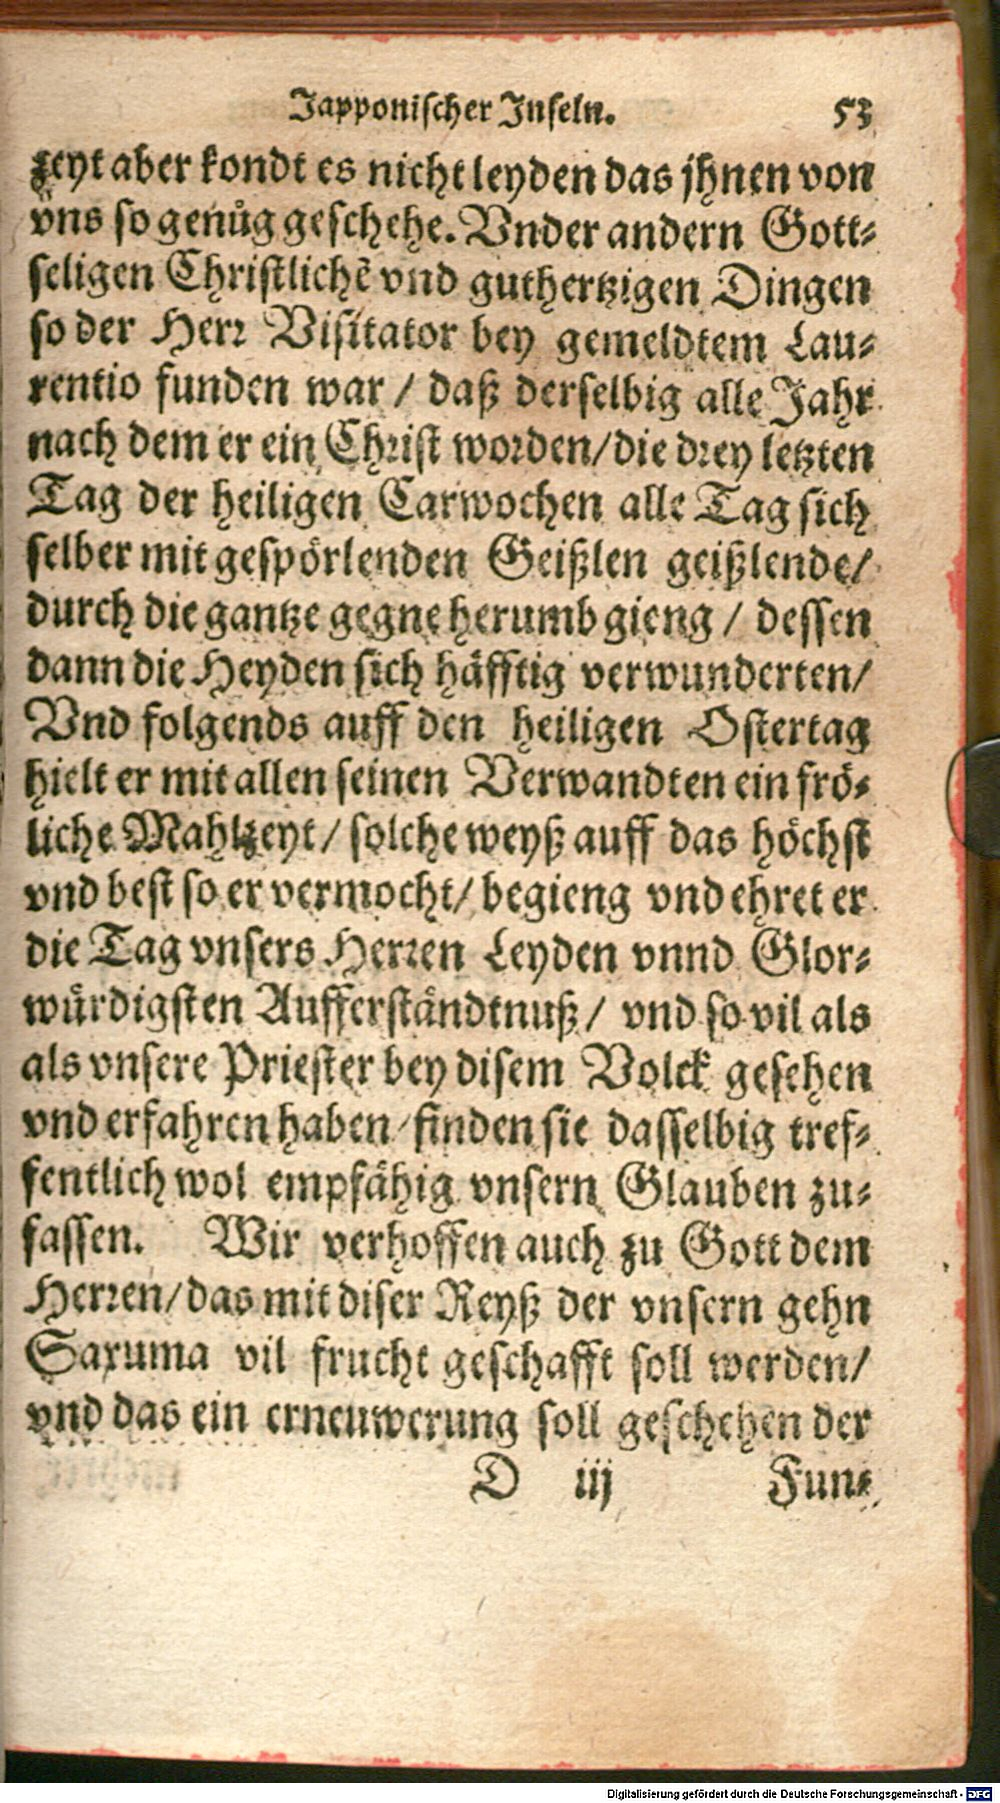 Japponischer Inseln. 53
zeyt aber kondt es nicht leyden das jhnen von
vns so genůg geschehe. Vnder andern Gott-
seligen Christlichẽ vnd guthertzigen Dingen
so der Herr Visitator bey gemeldtem Lau-
rentio funden war / daß derselbig alle Jahr
nach dem er ein Christ worden/die drey letzten
Tag der heiligen Carwochen alle Tag sich
selber mit gespörlenden Geißlen geißlende/
durch die gantze gegne herumb gieng / dessen
dann die Heyden sich häfftig verwunderten/
Vnd folgends auff den heiligen Ostertag
hielt er mit allen seinen Verwandten ein frö-
liche Mahlzeyt / solche weyß auff das höchst
vnd best so er vermocht/ begieng vnd ehret er
die Tag vnsers Herren Leyden vnnd Glor-
würdigsten Aufferständtnuß / vnd so vil als
als vnsere Priester bey disem Volck gesehen
vnd erfahren haben/finden sie dasselbig tref-
fentlich wol empfähig vnsern Glauben zu-
fassen. Wir verhoffen auch zu Gott dem
Herren/das mit diser Reyß der vnsern gehn
Saxuma vil frucht geschafft soll werden/
vnd das ein erneuwerung soll geschehen der
D iij Fun-
Digitalisierung gefördert durch die Deutsche Forschungsgemeinschaft - DFG